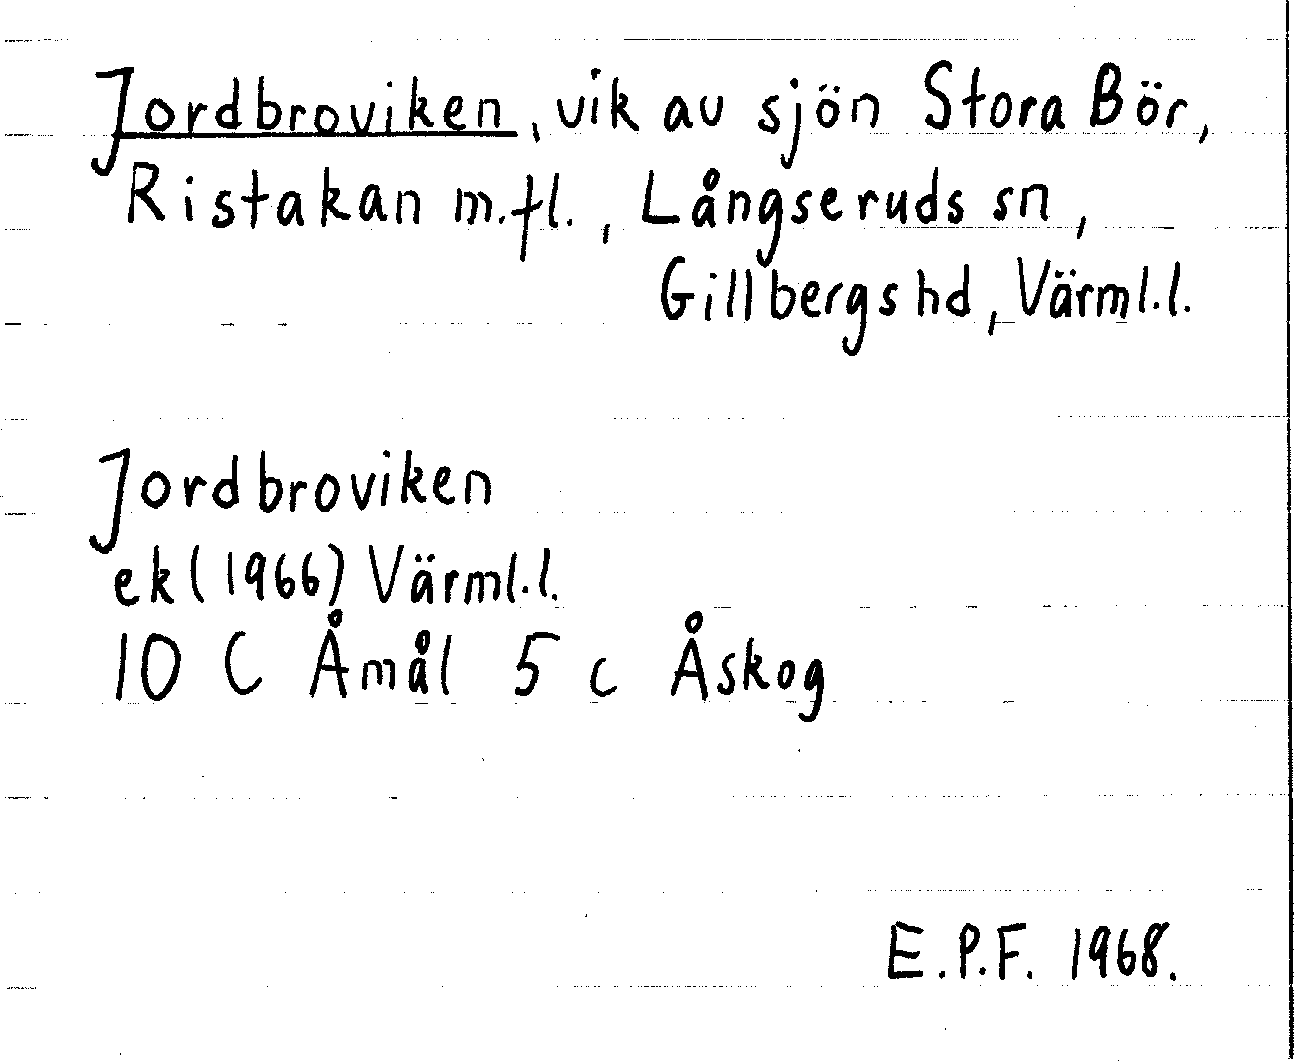 Jordbroviken, vik av sjön Stora Bör,
Ristakan m.fl., Långseruds sn,
Gillbergs hd, Värml.l.
Jordbroviken
ek (1966) Värml.l.
10 C Åmål 5 c Åskog
E.P.F. 1968.